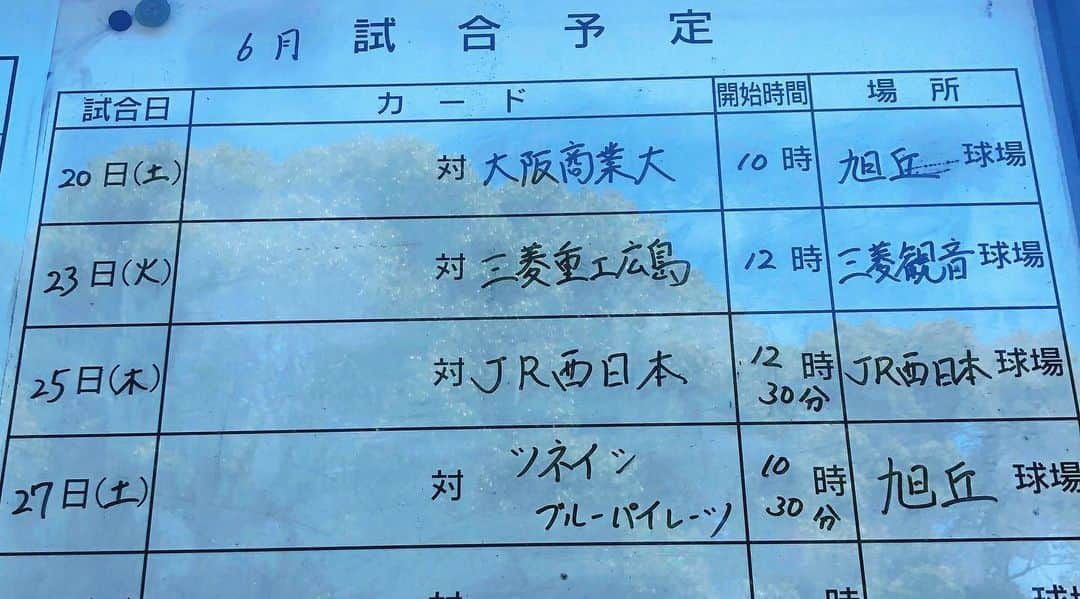 6月 試合予定
試合日 カード 開始時間 場所
20日(土) 対 大阪商業大 10時 旭丘球場
23日(火) 対 三菱重工広島 12時 三菱観音球場
25日(木) 対 JR西日本 12時30分 JR西日本球場
27日(土) 対 ツネイシブルーパイレーツ 10時30分 旭丘球場
対 時 球場